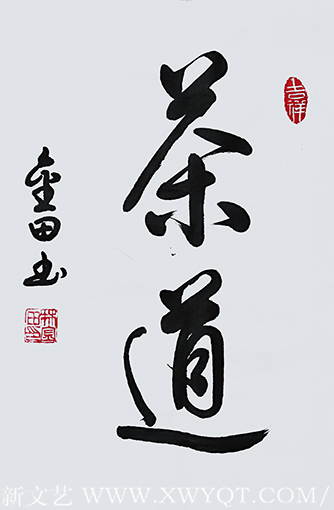 茶道
吉祥
金田书
新文艺 WWW.XWYQT.COM/